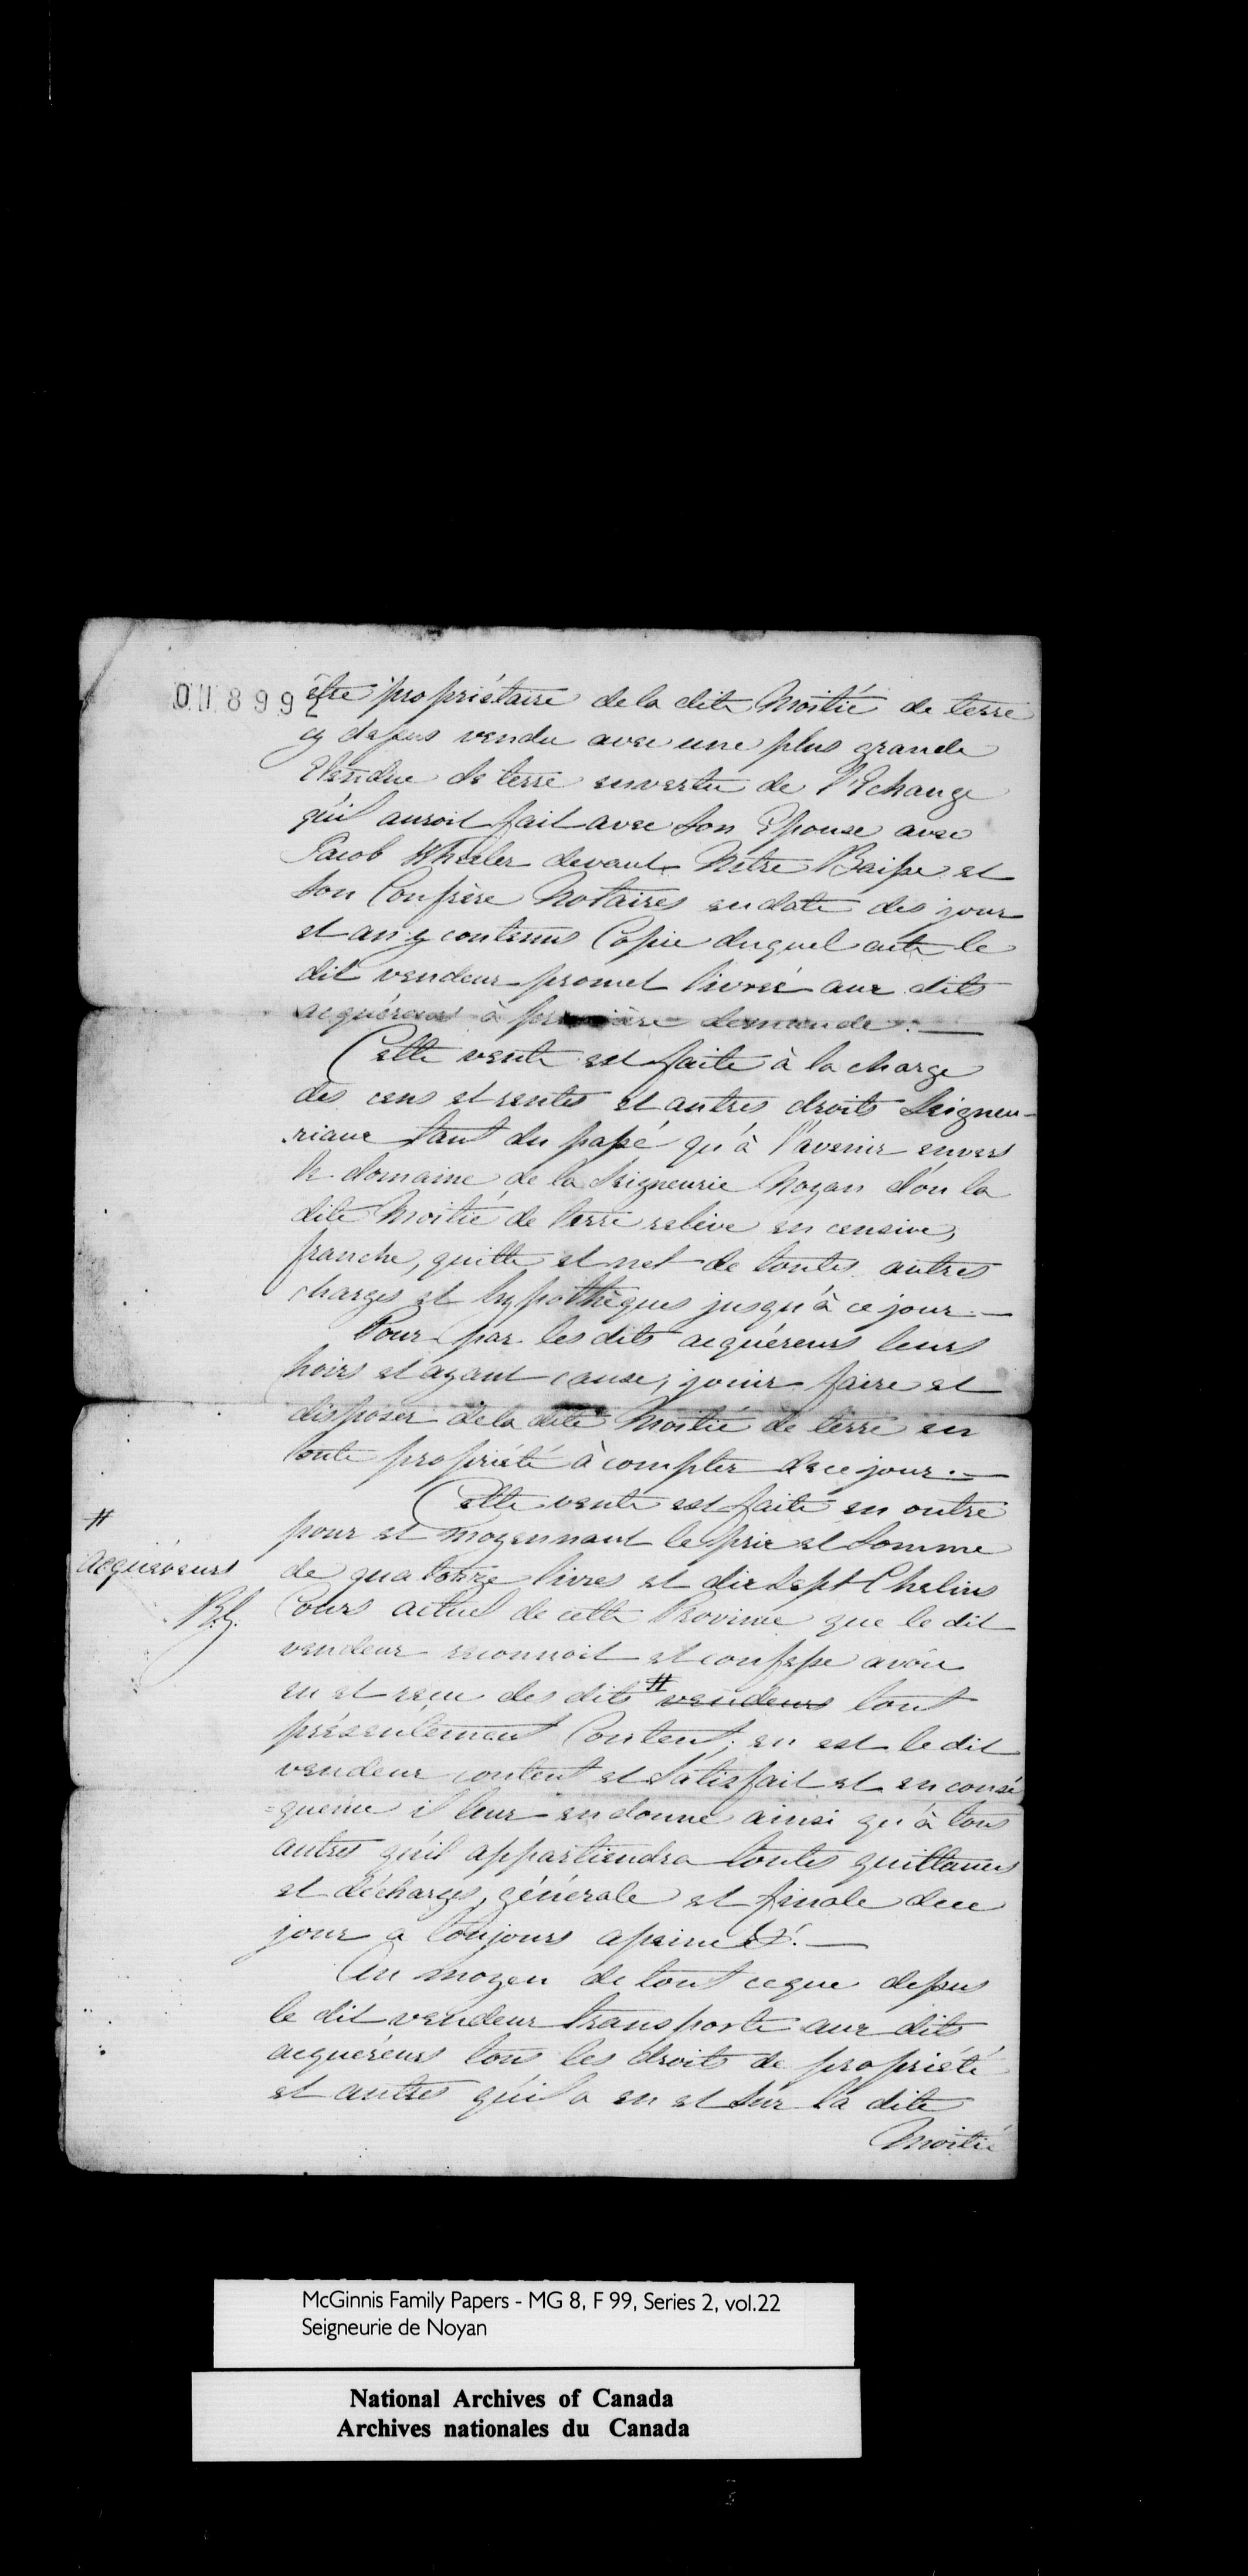 011899
être propriétaire de la dite Moitié de terre
cy dessus vendu avec une plus grande
Etendue de terre envertu de l'Echange
qu'il auroit fait avec son Epouse avec
Jacob Wheeler devant Mtre Baisse et
son Confrère Notaires en date des jour
et an y contenus Copie duquel acte le
dit vendeur promet livrer aux dits
acquéreurs à première demande. —
Cette vente est faite à la charge
des cens et rentes et autres droits Seigneu-
riaux tant du passé qu'à l'avenir envers
le domaine de la Seigneurie Noyan d'ou la
dite Moitié de terre relève en censive,
franche, quitte et net de toutes autres
charges et hypothèques jusqu'à ce jour. —
Pour par les dits acquéreurs leurs
hoirs et ayant cause, jouir faire et
disposer de la dite Moitié de terre en
toute propriété à compter de ce jour. —
Cette vente est faite en outre
pour et moyennant le prix et somme
de quatorze livres et dix sept Chelins
Cours actuel de cette Province que le dit
vendeur reconnoit et confesse avoir
eu et reçu des dits # vendeurs tout
#
acquéreurs
présentement Contents; en est le dit
vendeur content et Satisfait et en consé
=quence il leur en donne ainsi qu'à tous
autres qu'il appartiendra toutes quittances
et décharges, générale et finale de ce
jour a toujours
Au moyen de tout ceque dessus
le dit vendeur transporte aux dits
acquéreurs tous les droits de propriété
et autres qu'il a en et sur la dite
Moitié
McGinnis Family Papers - MG 8, F 99, Series 2, vol.22
Seigneurie de Noyan
National Archives of Canada
Archives nationales du Canada